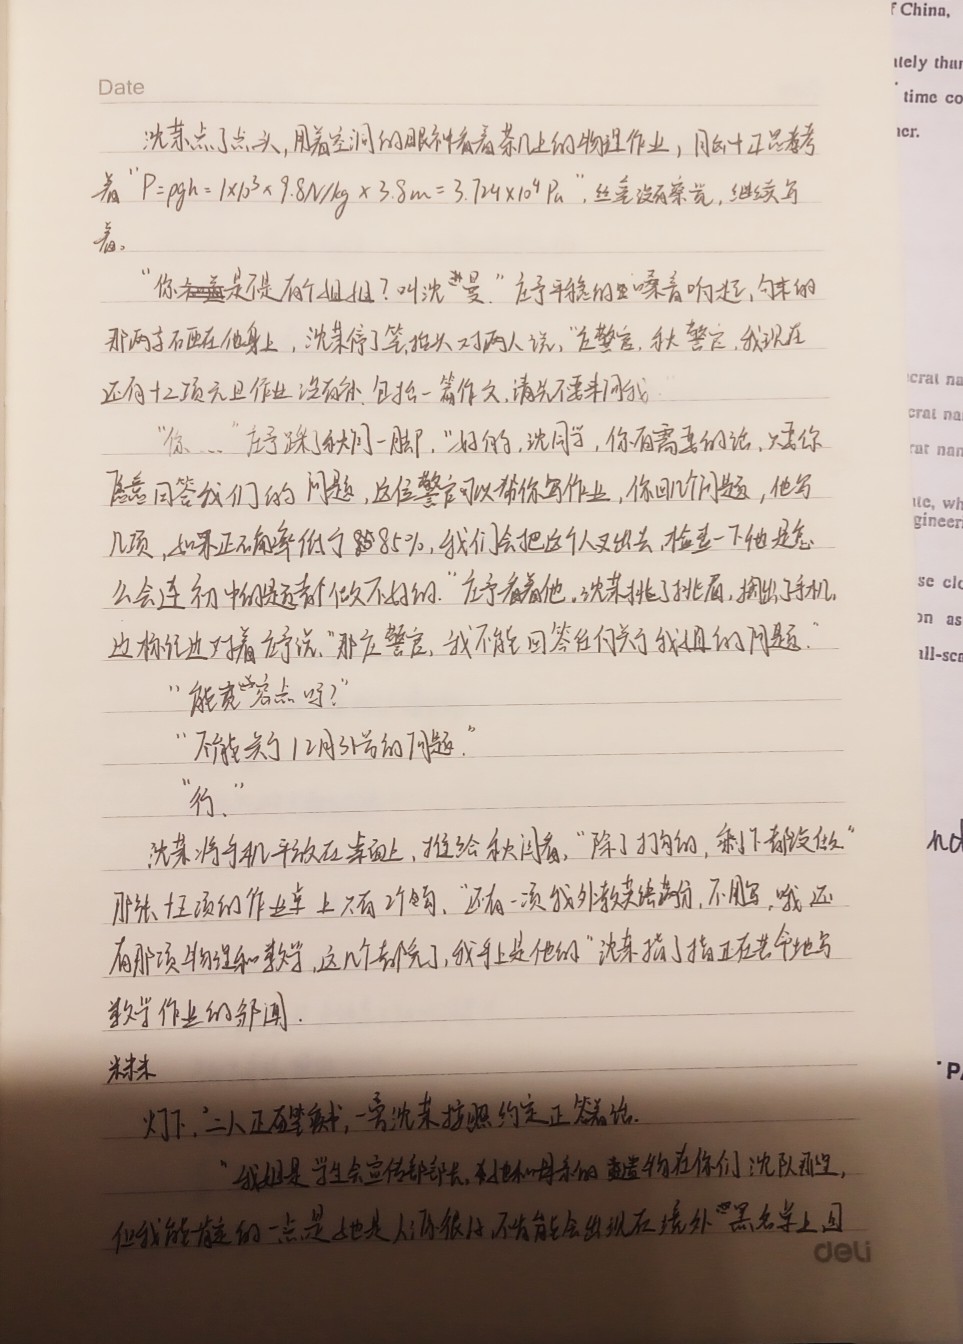 Date
沈莱点了点头，用着空洞的眼神看着茶几上的物理作业，用的十正思考
着“P=ρgh=1×10³×9.8N/kg×3.8m=3.724×10⁴Pa”，丝毫没有察觉，继续写
着。
“你是不是有个姐姐？叫沈曼。”庄予平稳的嗓音响起，匀来的
那两支石画在他身上，沈莱停了笔，抬头对两人说，“庄警官，秋警官，我现在
还有十二项元旦作业没有补，包括一篇作文，请先不要来问我
“你……”庄予踩了秋闫一脚，“好的，沈同学，你有需要的话，只要你
愿意回答我们的问题，这位警官可以帮你写作业，你回几个问题，他写
几项，如果正确率低于85%，我们会把这个人叉出去，检查一下他是怎
么会连初中的题都做不好的。”庄予看着他。沈莱挑了挑眉，掏出了手机，
边标注边对着庄予说，“那庄警官，我不能回答任何关于我姐的问题。”
“能宽容点吗？”
“不能关于12月31号的问题。”
“行。”
沈莱将手机平放在桌面上，推给秋闫看，“除了打勾的，剩下都没做”
那张十五项的作业单上只有2个勾，“还有一项我外教英语满分，不用写，哦还
有那项物理和数学，这几个都完了，我手上是他的”沈莱指了指正在苦命地写
数学作业的邹闻．
米米米
灯下，二人正在奋笔疾书，一旁沈莱按照约定正答着话．
“我姐是学生会宣传部部长，她和母亲的遗物在你们沈队那里，
但我能肯定的一点是她是人际很好，不肯能会出现在境外黑名单上同
deli
f China,
tely than
time co
ner.
crat na
crat na
rat nan
te, wh
gineeri
se clo
on as
all-sca
nd
PA